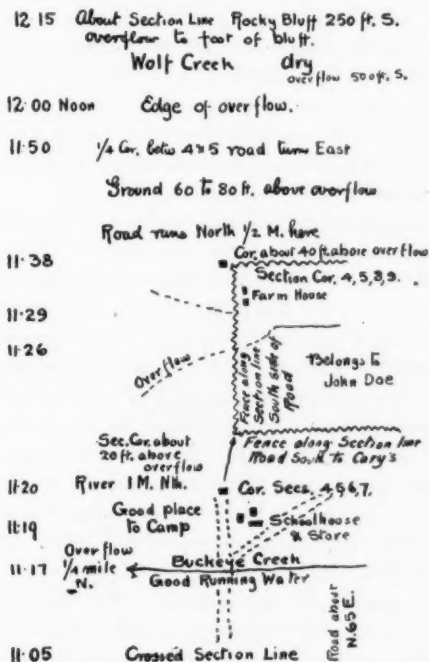 12·15 About Section Line Rocky Bluff 250 ft. S.
overflow to foot of bluff.
Wolf Creek dry
overflow 500 ft. S.
12·00 Noon Edge of overflow.
11·50 1/4 Cor. betw 4 & 5 road turns East
Ground 60 to 80 ft. above overflow
Road runs North 1/2 M. here
11·38 Cor. about 40 ft above overflow
Section Cor. 4, 5, 8, 9.
Farm House
11·29
11·26
Overflow
Fence along
Section line
South Side of
Road
Belongs to
John Doe
Sec. Cor. about
20 ft. above
overflow
Fence along Section line
Road South to Cary's
11·20 River 1 M. Nth. Cor. Secs. 4, 5, 6, 7.
11·19 Good place
to Camp
Schoolhouse
& Store
11·17 Overflow
1/4 mile
N.
Buckeye Creek
Good Running Water
Road about
N. 65 E.
11·05 Crossed Section Line